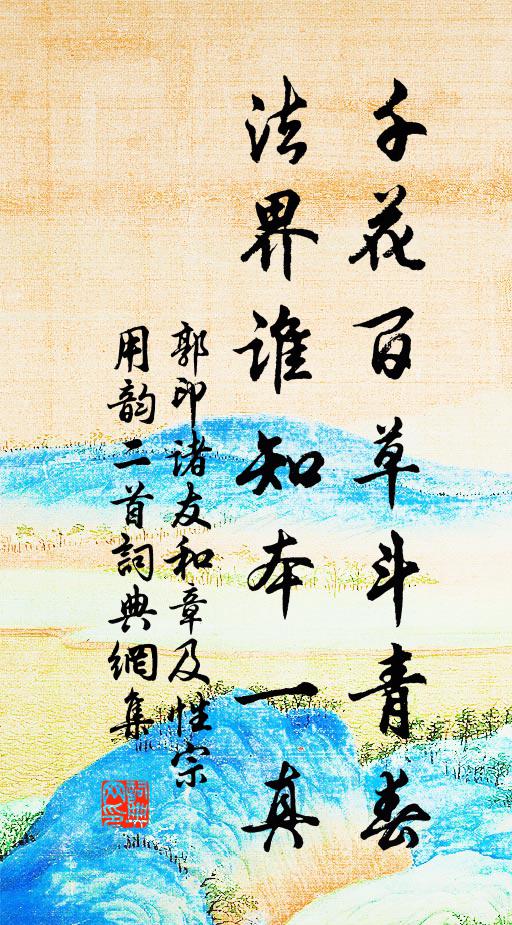 千花百草斗青春
法界谁知本一真
郭印诸友和章及性宗
用韵二首詞典網集